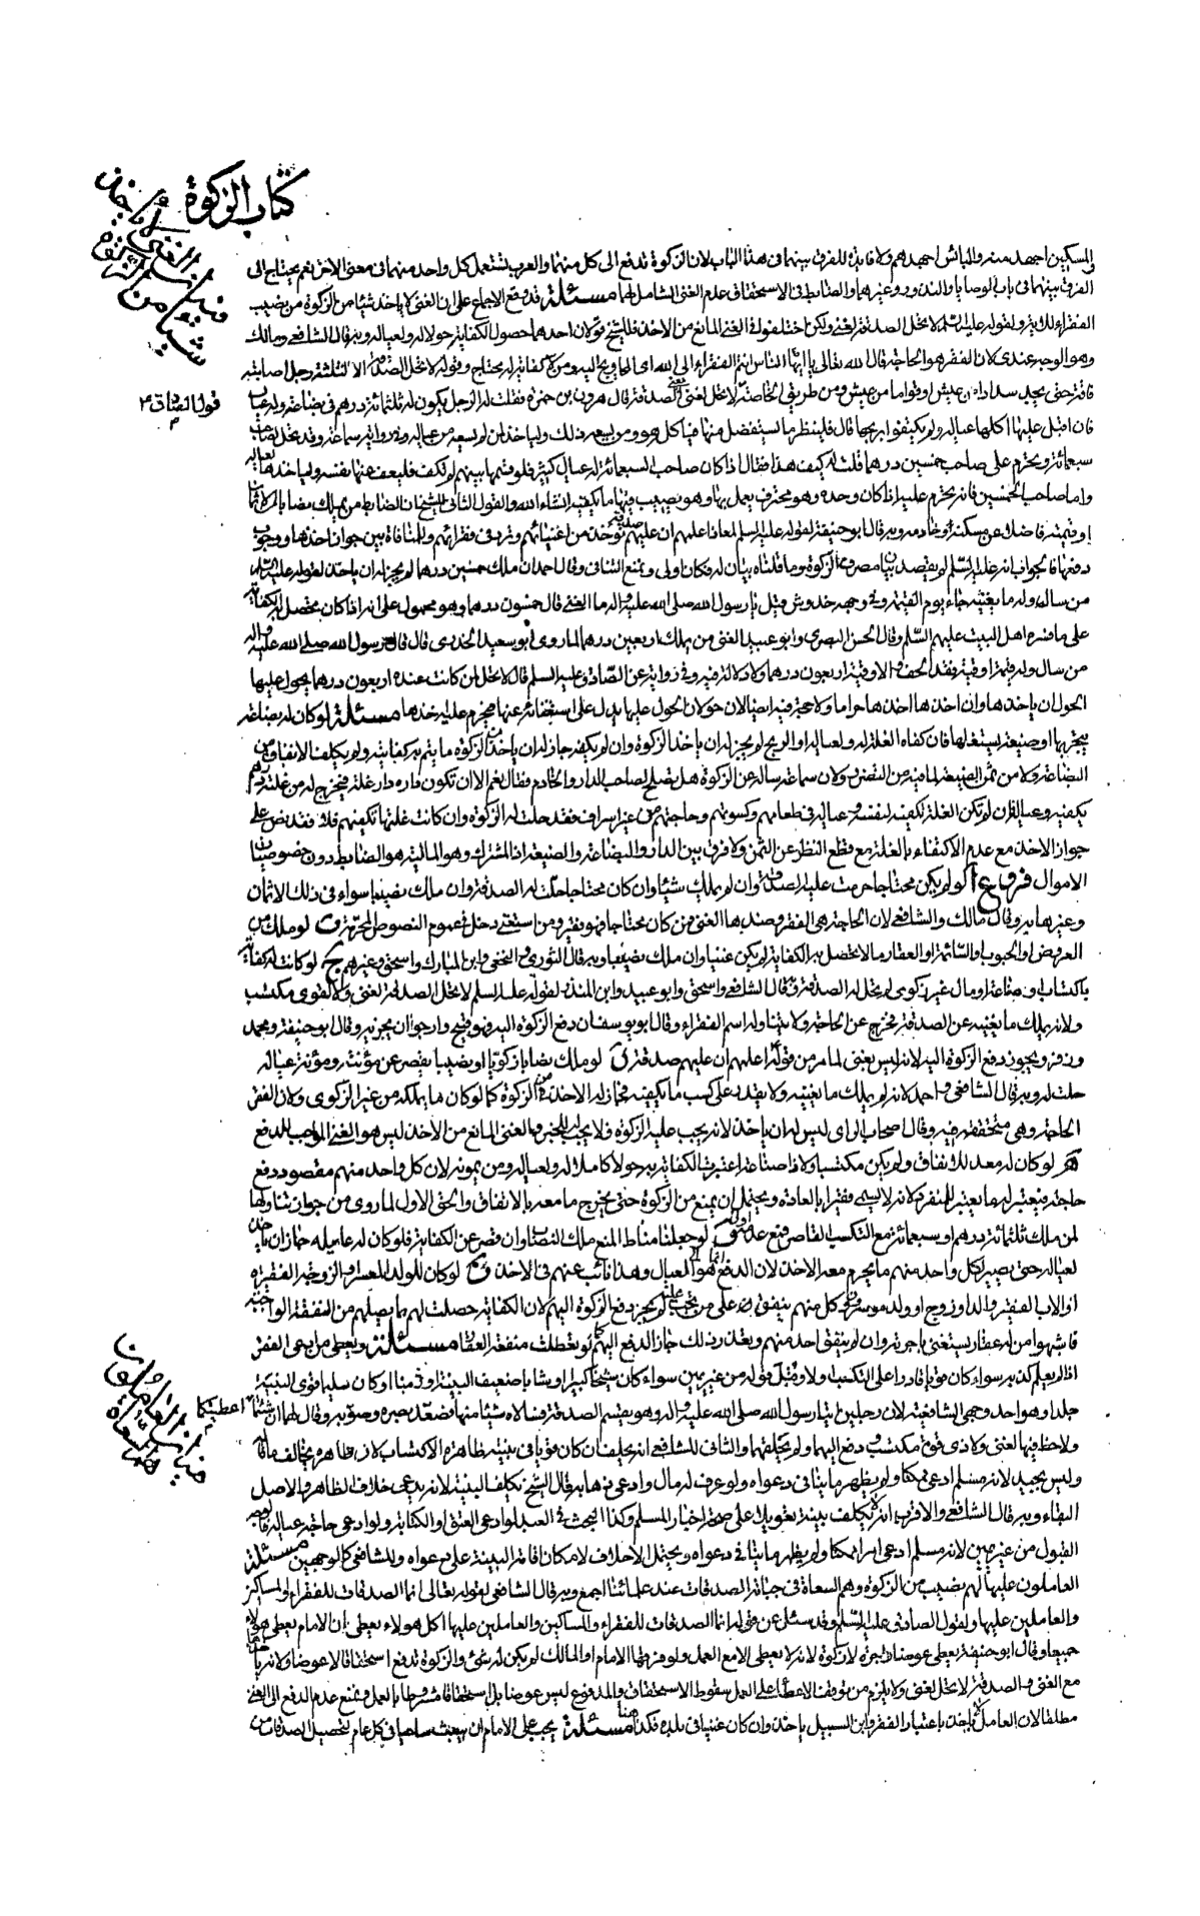 كتاب الزكوة
في بيان ان الغني لا يأخذ شيئا من الزكوة
المسكين اجهد منه والبائس اجهدهم ولا فايدة للفرق بينهما في هذا الباب لان الزكوة تدفع الى كل منهما والعرب تستعمل كل واحد منهما في معنى الاخر نعم يحتاج الى
الفرق بينهما في باب الوصايا والنذور وغيرهما والضابط في الاستحقاق عدم الغنى الشامل لهما مسئلة قد وقع الاجماع على ان الغني لا ياخذ شيئا من الزكوة من نصيب
الفقراء للاية ولقوله عليه السلم لا تحل الصدقة لغني ولكن اختلفوا في الغنى المانع من الاخذ فللشيخ قولان احدهما حصول الكفاية حولا له ولعياله وبه قال الشافعي ومالك
وهو الوجه عندي لان الفقر هو الحاجة قال الله تعالى يا ايها الناس انتم الفقراء الى الله اي المحاويج اليه ومن لا كفاية له محتاج وقوله لا تحل الصدقة الا لثلثة رجل اصابته
فاقة حتى يجد سدادا من عيش او قواما من عيش ومن طريق الخاصة لا تحل لغني الصدقة قال هرون بن حمزة فقلت له الرجل يكون له ثلثمائة درهم في بضاعة وله عيال
قول الصادق ع
فان اقبل عليها اكلها عياله ولم يكتفوا بربحها قال فلينظر ما يستفضل منها فياكله هو ومن يسعه ذلك ولياخذ لمن لم يسعه من عياله وفي رواية سماعة وقد تحل لصاحب
سبعمائة وتحرم على صاحب خمسين درهما قلت له كيف هذا فقال اذا كان صاحب السبعمائة له عيال كثير فلو قسمها بينهم لم تكف فليعف عنها نفسه ولياخذها لعياله
واما صاحب الخمسين فانه يحرم عليه اذا كان وحده وهو محترف يعمل بها وهو يصيب فيها ما يكفيه انشاء الله والقول الثاني للشيخ ان الضابط من يملك نصابا من الاثمان
او قيمته فاضلا عن مسكنه وخادمه وبه قال ابو حنيفة لقوله عليه السلم لمعاذ اعلمهم ان عليهم صدقة تؤخذ من اغنيائهم وترد في فقرائهم والمنافاة بين جواز اخذها ووجوب
دفعها فالجواب انه عليه السلم لم يقصد بيان مصرف الزكوة وما قلناه بيان له فكان اولى ونمنع التنافي وقال احمد ان ملك خمسين درهما لم يجز له ان ياخذ لقوله عليه السلام
من سال وله ما يغنيه جاء يوم القيمة وفي وجهه خدوش فقيل يا رسول الله صلى الله عليه واله ما الغنى قال خمسون درهما وهو محمول على انه اذا كان محصل له الكفاية
على ما فسره اهل البيت عليهم السلم وقال الحسن البصري وابو عبيد الغنى من يملك اربعين درهما لما روى ابو سعيد الخدري قال قال رسول الله صلى الله عليه واله
من سال وله قيمة اوقية فقد الحف والاوقية اربعون درهما ولا دلالة فيه وفي رواية عن الصادق عليه السلم قال لا تحل لمن كانت عنده اربعون درهما يحول عليها
الحول ان ياخذها وان اخذها اخذها حراما ولا حجة فيه ايضا لان حولان الحول عليها يدل على استغنائه عنها فيحرم عليه اخذها مسئلة لو كان له بضاعة
يتجر بها او ضيعة يستغلها فان كفاه الغلة له ولعياله او الربح لم يجز له ان ياخذ الزكوة وان لم يكفه جاز له ان ياخذ من الزكوة ما يتم به كفايته ولم يكلف الانفاق من
البضاعة ولا من ثمن الضيعة لما فيه من التضرر ولان سماعة ساله عن الزكوة هل يصلح لصاحب الدار والخادم فقال نعم الا ان تكون داره دار غلة فيخرج له من غلتها دراهم
يكفيه وعياله فان لم تكن الغلة تكفيه لنفسه وعياله في طعامهم وكسوتهم وحاجتهم من غير اسراف فقد حلت له الزكوة وان كانت غلتها تكفيهم فلا فقد نص على
جواز الاخذ مع عدم الاكتفاء بالغلة مع قطع النظر عن الثمن ولا فرق بين الدار والبضاعة والضيعة اذ المشترك وهو المالية هو الضابط دون خصوصيات
الاموال فروع ا لو لم يكن محتاجا حرمت عليه الصدقة وان لم يملك شيئا وان كان محتاجا حلت له الصدقة وان ملك نصيبا سواء في ذلك الاثمان
وغيرها وبه قال مالك والشافعي لان الحاجة هي الفقر وضدها الغنى فمن كان محتاجا فهو فقير ومن استغنى دخل في عموم النصوص المحرمة ب لو ملك من
العروض او الحبوب او السائمة او العقار ما لا تحصل به الكفاية لم يكن غنيا وان ملك نصبا وبه قال الثوري والنخعي وابن المبارك واسحق وغيرهم ج لو كانت له كفاية
باكتساب وصناعة او مال غير زكوي لم تحل له الصدقة وبه قال الشافعي واسحق وابو عبيد وابن المنذر لقوله عليه السلم لا تحل الصدقة لغني ولا لقوي مكتسب
ولانه يملك ما يغنيه عن الصدقة فيخرج عن الحاجة ولا يتناوله اسم الفقراء وقال ابو يوسف ان دفع الزكوة اليه فهو قبيح وارجو ان يجزيه وقال ابو حنيفة ومحمد
وزفر يجوز دفع الزكوة اليه لانه ليس بغني لما مر من قوله اعلمهم ان عليهم صدقة د لو ملك نصابا زكويا او نصيبا يقصر عن مؤنته ومؤنة عياله
حلت له وبه قال الشافعي واحمد لانه لم يملك ما يغنيه ولا يقدر على كسب ما يكفيه فجاز له الاخذ من الزكوة كما لو كان ما يملكه من غير الزكوي ولان الفقر
الحاجة وهي متحققة فيه وقال اصحاب الراي ليس له ان ياخذ لانه يجب عليه الزكوة فلا يجب له للخبر والغنى المانع من الاخذ ليس هو الغنى الموجب للدفع
ه لو كان له معد للانفاق ولم يكن مكتسبا ولا ذا صناعة اعتبرت الكفاية به حولا كاملا له ولعياله ومن يمونه لان كل واحد منهم مقصود دفع
حاجته فيعتبر له ما يعتبر للمنفرد لانه لا يسمى فقيرا بالعادة ويحتمل ان يمنع من الزكوة حتى يخرج ما معه بالانفاق والحق الاول لما روى من جواز تناولها
لمن ملك ثلثمائة درهم او سبعمائة مع التكسب القاصر فمع عدمه اولى و لو جعلنا مناط المنع ملك النصاب وان قصر عن الكفاية فلو كان له عايلة جاز ان ياخذ
لعياله حتى يصير لكل واحد منهم ما يحرم معه الاخذ لان الدفع انما هو الى العيال وهذا نائب عنهم في الاخذ ز لو كان للولد المعسر او الزوجة الفقيرة
او الاب الفقير والد او زوج او ولد موسر وكل منهم ينفق على من تجب عليه لم يجز دفع الزكوة اليهم لان الكفاية حصلت لهم بما يصلهم من النفقة الواجبة
فاشبهوا من له عقار يستغني باجرته وان لم ينفق احد منهم وتعذر ذلك جاز الدفع اليهم كما لو تعطلت منفعة العقار مسئلة ويعطى من ادعى الفقر
اذا لم يعلم كذبه سواء كان قويا قادرا على التكسب اولا وقبل قوله من غير يمين سواء كان شيخا كبيرا او شابا ضعيف البنية او زمنا او كان سليما قوي البنية
جلدا وهو احد وجهي الشافعية لان رجلين اتيا رسول الله صلى الله عليه واله وهو يقسم الصدقة فسالاه شيئا منها فصعد بصره وصوبه وقال لهما ان شئتما اعطيتكما
ولا حظ فيها لغني ولا ذي قوة مكتسب ودفع اليهما ولم يحلفهما والثاني للشافعي انه يحلف ان كان قويا في بنيته ظاهره الاكتساب لان ظاهره يخالف ما قاله
في بيان العاملون هم السعاة
وليس بجيد لانه مسلم ادعى ممكنا ولم يظهر ما ينافي دعواه ولو عرف له مال وادعى ذهابه قال الشيخ يكلف البينة لانه يدعي خلاف الظاهر والاصل
البقاء وبه قال الشافعي والاقرب انه لا يكلف بينة تعويلا على صحة اخبار المسلم وكذا البحث في العبد لو ادعى العتق او الكتابة ولو ادعى حاجة عياله فالوجه
القبول من غير يمين لانه مسلم ادعى امرا ممكنا ولم يظهر ما ينافي دعواه ويحتمل الاحلاف لامكان اقامة البينة على دعواه وللشافعي كالوجهين مسئلة
العاملون عليها لهم نصيب من الزكوة وهم السعاة في جباية الصدقات عند علمائنا اجمع وبه قال الشافعي لقوله تعالى انما الصدقات للفقراء والمساكين
والعاملين عليها ولقول الصادق عليه السلم وقد سئل عن قوله انما الصدقات للفقراء والمساكين والعاملين عليها اكل هولاء يعطى ان الامام يعطي هولاء
جميعا وقال ابو حنيفة يعطى عوضا واجرة لا زكوة لانه لا يعطى الا مع العمل ولو فرقها الامام او المالك لم يكن له شئ والزكوة تدفع استحقاقا لا عوضا ولانه ياخذ
مع الغنى والصدقة لا تحل لغني ولا يلزم من توقف الاعطاء على العمل سقوط الاستحقاق والمدفوع ليس عوضا بل استحقاقا مشروطا بالعمل ونمنع عدم الدفع الى الغني
مطلقا لان العامل لا ياخذ باعتبار الفقر وابن السبيل ياخذ وان كان غنيا في بلده فكذا هنا مسئلة يجب على الامام ان يبعث ساعيا في كل عام لتحصيل الصدقات من